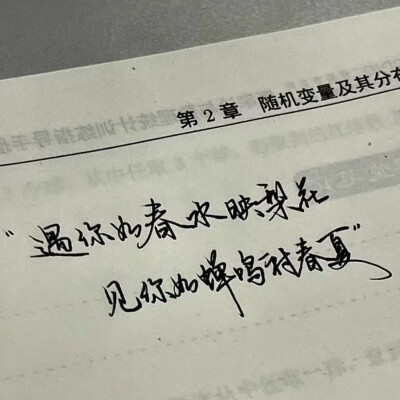 第2章 随机变量及其分布
“遇你如春水映梨花
见你如蝉鸣衬春夏”